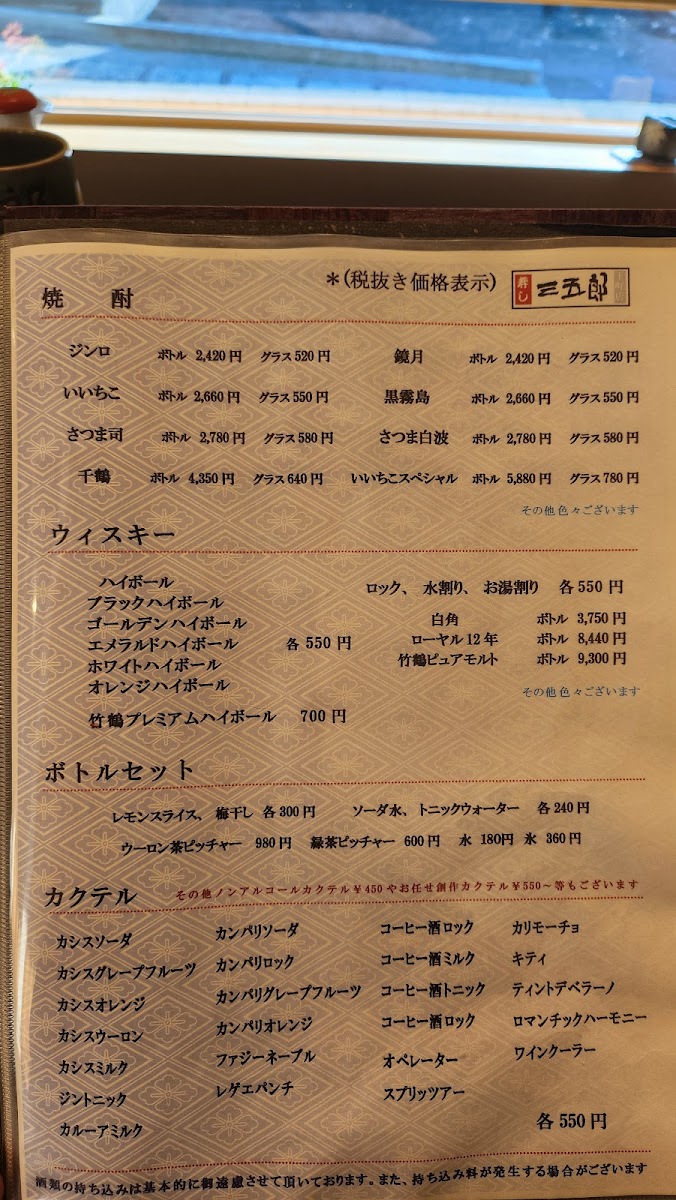 焼酎
＊(税抜き価格表示)
寿し 三五郎
ジンロ ボトル 2,420円 グラス520円 鏡月 ボトル 2,420円 グラス520円
いいちこ ボトル 2,660円 グラス550円 黒霧島 ボトル 2,660円 グラス550円
さつま司 ボトル 2,780円 グラス580円 さつま白波 ボトル 2,780円 グラス580円
千鶴 ボトル 4,350円 グラス640円 いいちこスペシャル ボトル 5,880円 グラス780円
その他色々ございます
ウィスキー
ハイボール
ブラックハイボール
ゴールデンハイボール
エメラルドハイボール 各550円
ホワイトハイボール
オレンジハイボール
竹鶴プレミアムハイボール 700円
ロック、水割り、お湯割り 各550円
白角 ボトル 3,750円
ローヤル12年 ボトル 8,440円
竹鶴ピュアモルト ボトル 9,300円
その他色々ございます
ボトルセット
レモンスライス、梅干し 各300円 ソーダ水、トニックウォーター 各240円
ウーロン茶ピッチャー 980円 緑茶ピッチャー 600円 水 180円 氷 360円
カクテル その他ノンアルコールカクテル￥450やお任せ創作カクテル￥550~等もございます
カシスソーダ
カシスグレープフルーツ
カシスオレンジ
カシスウーロン
カシスミルク
ジントニック
カルーアミルク
カンパリソーダ
カンパリロック
カンパリグレープフルーツ
カンパリオレンジ
ファジーネーブル
レゲエパンチ
コーヒー酒ロック
コーヒー酒ミルク
コーヒー酒トニック
コーヒー酒ロック
オペレーター
スプリッツアー
カリモーチョ
キティ
ティントデベラーノ
ロマンチックハーモニー
ワインクーラー
各550円
酒類の持ち込みは基本的に御遠慮させて頂いております。また、持ち込み料が発生する場合がございます